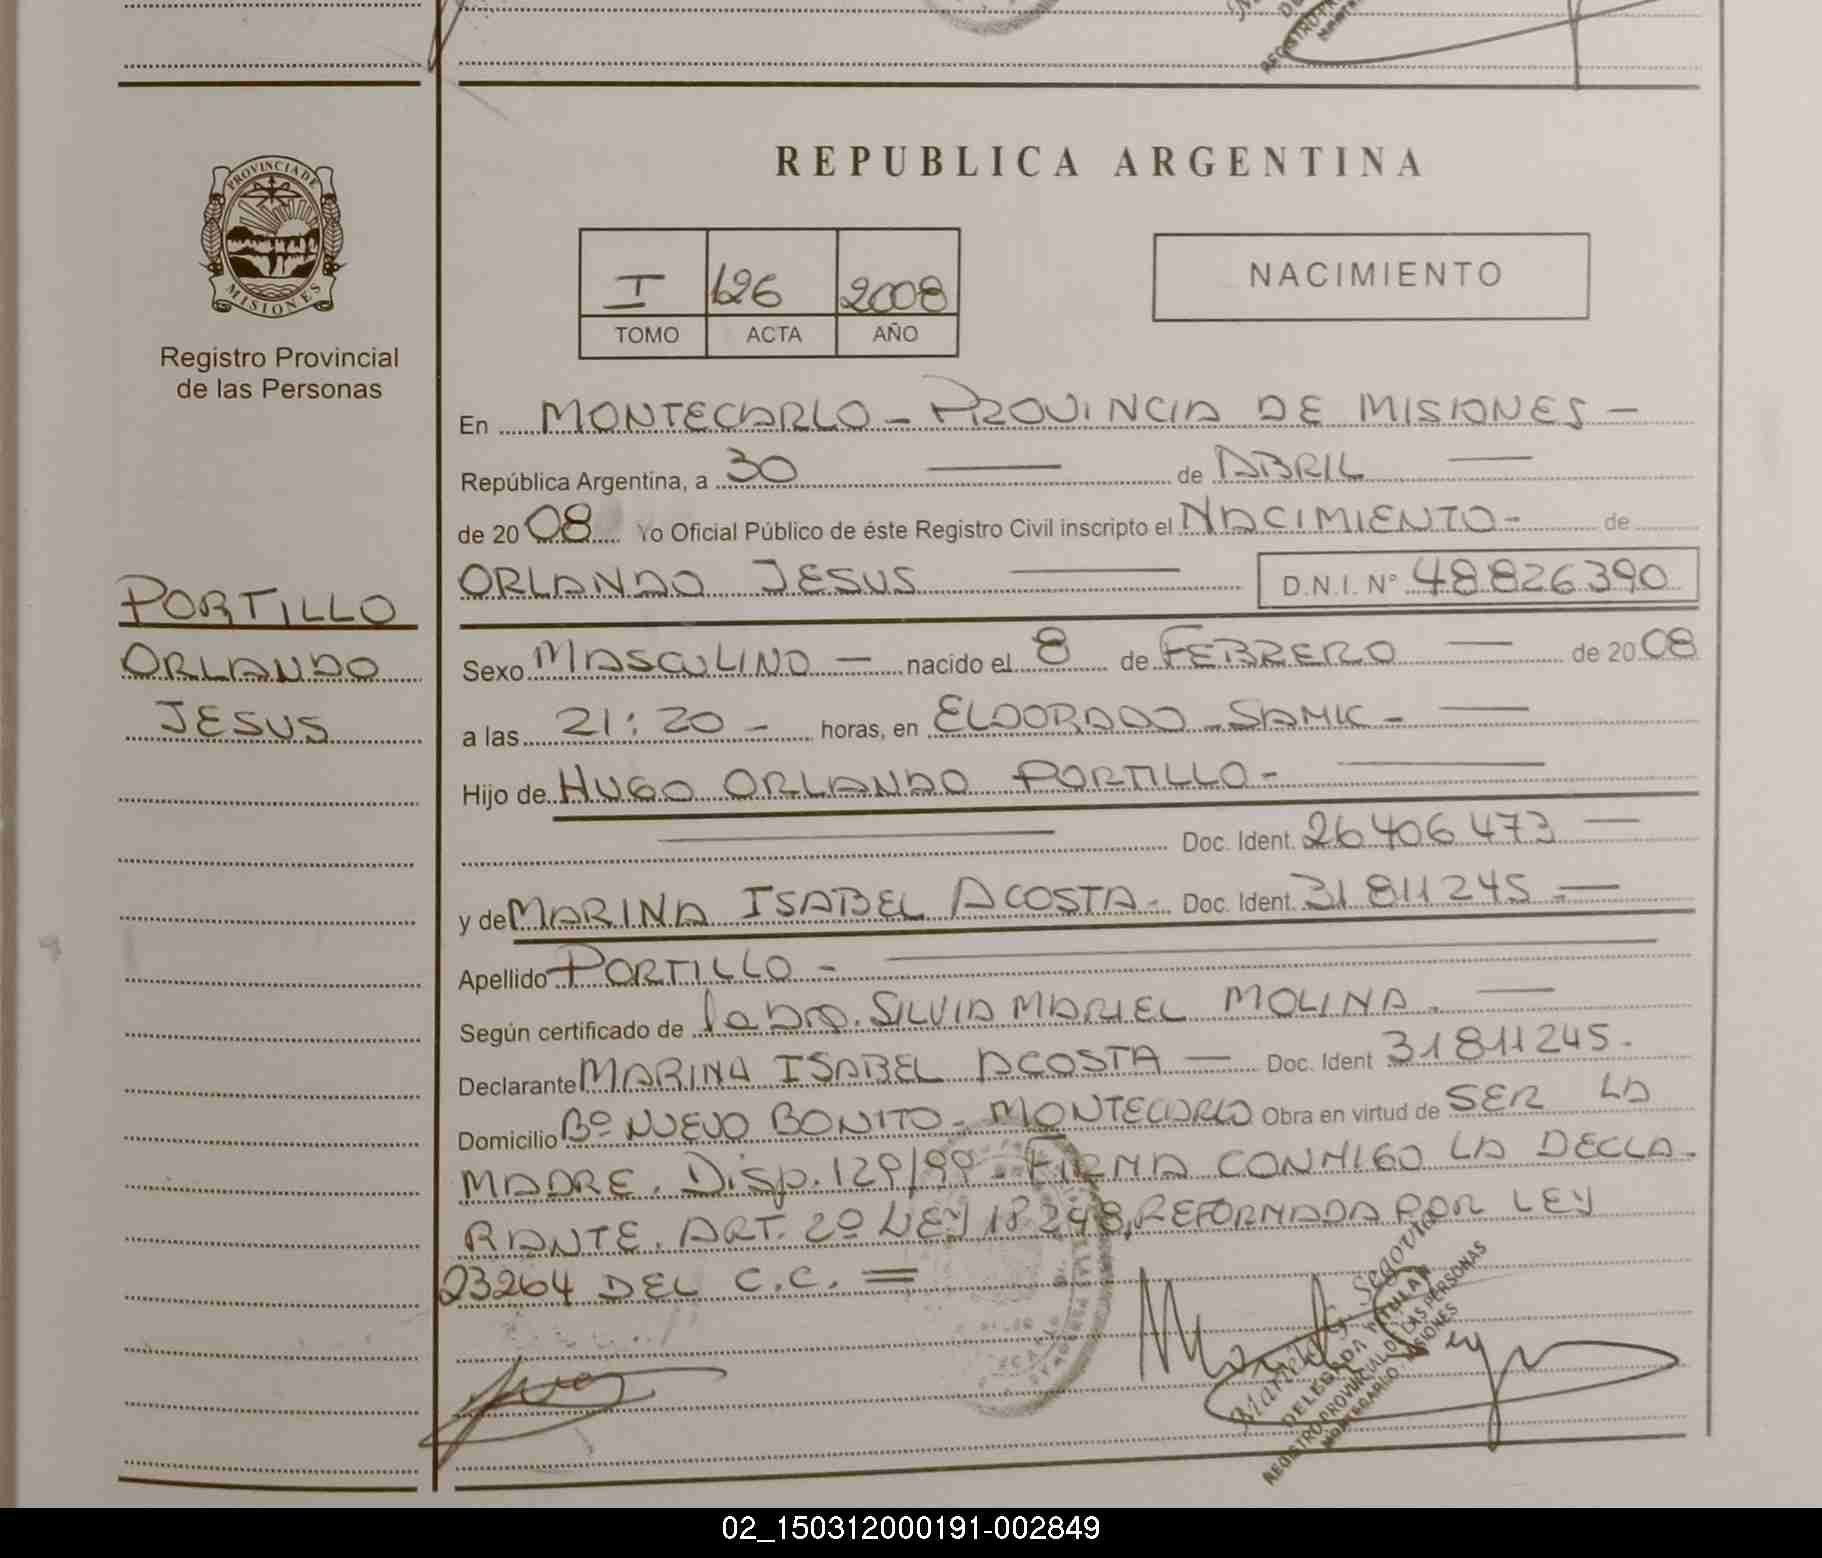 PROVINCIA DE
MISIONES
Registro Provincial
de las Personas
PORTILLO
ORLANDO
JESUS
REPUBLICA ARGENTINA
I 126 2008
TOMO ACTA AÑO
NACIMIENTO
En MONTECARLO - PROVINCIA DE MISIONES -
República Argentina, a 30 de ABRIL
de 2008 Yo Oficial Público de éste Registro Civil inscripto el NACIMIENTO- de
ORLANDO JESUS D.N.I. Nº 48826390
Sexo MASCULINO - nacido el 8 de FEBRERO de 2008
a las 21:20 - horas, en ELDORADO - SAMIC -
Hijo de HUGO ORLANDO PORTILLO-
Doc. Ident. 26406473
y de MARINA ISABEL ACOSTA- Doc. Ident. 31811245 -
Apellido PORTILLO -
Según certificado de la Dra. SILVIA MARIEL MOLINA.
Declarante MARINA ISABEL ACOSTA - Doc. Ident 31811245.
Domicilio Bº NUEVO BONITO - MONTECARLO Obra en virtud de SER LA
MADRE. Disp. 129/99 - FIRMA CONMIGO LA DECLA-
RANTE. ART. 2º LEY 18248, REFORMADA POR LEY
23264 DEL C.C. =
Segovia
DELEGADA TITULAR
REGISTRO PROVINCIAL DE LAS PERSONAS
MONTECARLO - MISIONES
02_150312000191-002849